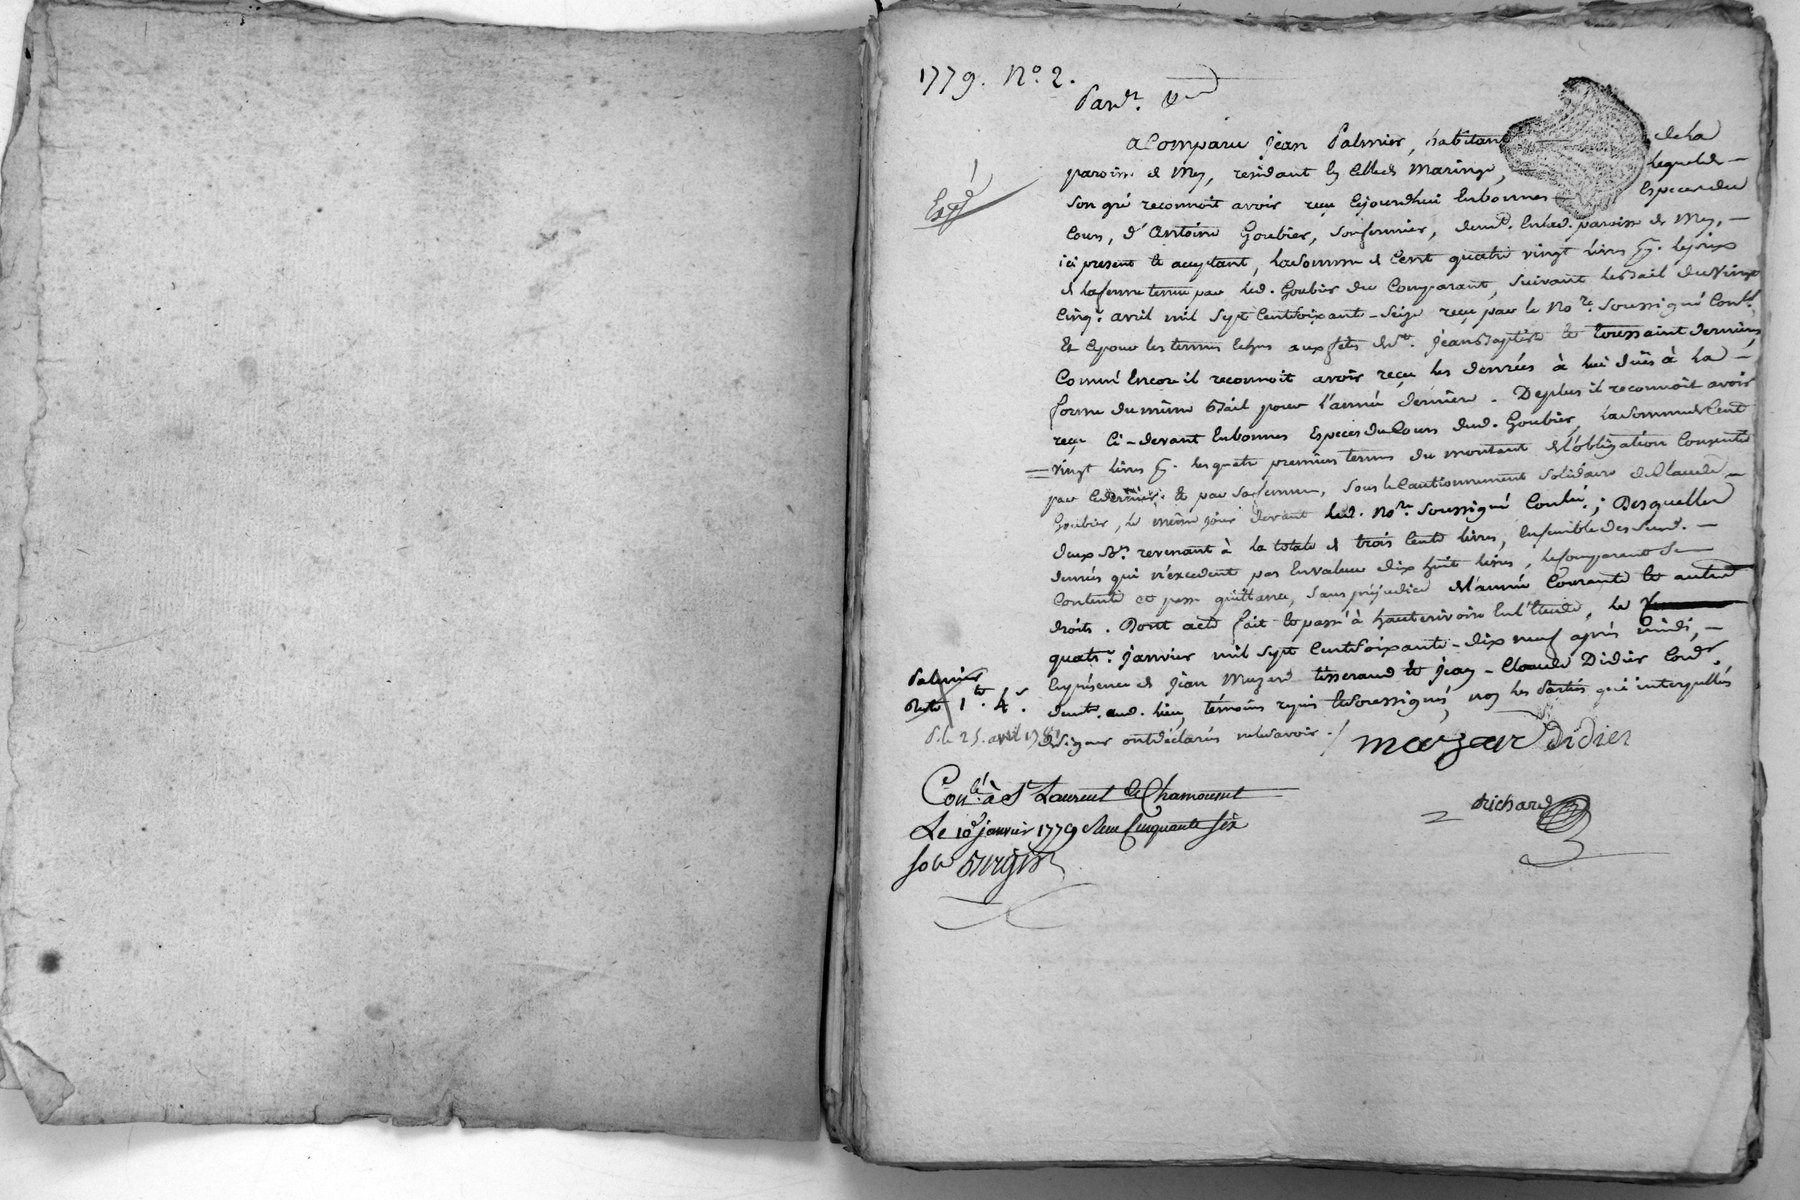 1779. No. 2.
Pardt.
a Comparu Jean Palmier, habitant de la
paroisse de Mey, residant en celle de Maringe, lequel de
son gré reconnoit avoir reçu cejourdhui en bonnes Especes du
Cours, d'Antoine Goubier, son fermier, demt. en lad. paroisse de Mey,
ici present et acceptant, la somme de Cent quatre vingt livres pr. le prix
de la ferme tenue par led. Goubier du Comparant, suivant le Bail du vingt
Cinq. avril mil Sept Cent Soixante-Seize reçu par le Nore. soussigné Conlé.
Et ce pour les termes Echus aux fêtes de St. Jean Baptiste et toussaint derniers
Comme Encore il reconnoit avoir reçu les denrées à lui dûës à la
forme du même Bail pour l'année derniere. De plus il reconnoit avoir
reçu Ci-devant en bonnes Especes du Cours dud. Goubier, la somme de Cent
vingt livres pr. les quatre premiers termes du montant de l'obligation Consentie
par ce dernier et par sa femme, sous le Cautionnement solidaire de Claude
Goubier, le même jour devant led. Nore. soussigné Conlée.; Desquelles
deux Ss. revenant à la totale de trois Cents livres, Ensemble des susd.
denrées qui n'excedent pas En valeur dix huit livres, le Comparant se
Contente et passe quittance, sans préjudice de l'année Courante et autres
droits. Dont acte fait et passé à hauterivoire En l'Etude, le
quatre. Janvier mil Sept Cent Soixante-dix neuf après midi,
En présence de Jean Mazard tisserand et Jean-Claude Didier Cordr.
demts. aud. lieu, témoins requis et soussignés, non les Parties qui interpellées
de signer ont déclarés ne le savoir./.
Mazard Didier
Expé
Palmier
1te. 4s.
P. le 25. avril 1781
Conlé. à St Laurent de Chamousset
Le 10 janvier 1779 Reçu Cinquante six
sols
Richard